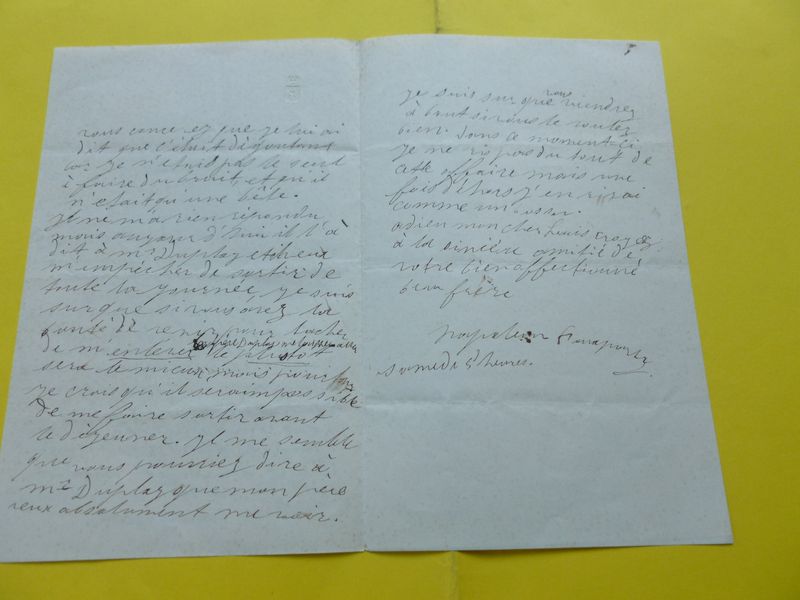 vous concevez que je lui ai
dit que c'était dégoutant
car je n'étais pas le seul
à faire du bruit, et qu'il
n'était qu'une bête.
Il ne m'a rien répondu
mais aujourd'hui il l'a
dit à mr Duplay et il veux
m'empêcher de sortir de
toute la journée, je suis
sur que si vous avez la
bonté de venir pour tacher
de m'enlever le plutot
sera le mieux, mais pourtant
je crois qu'il sera impossible
de me faire sortir avant
le déjeuner. Il me semble
que vous pourriez dire à
mr Duplay que mon père
veux absolument me voir.
je suis sur que vous viendrez
à bout si vous le voulez
bien. Dans ce moment-ci
je ne ris pas du tout de
cette affaire mais une
fois dehors j'en rirai
comme un
adieu mon cher Louis croyez
à la sincère amitié de
votre bien affectionné
beau frère
Napoléon Bonaparte
samedi 5 heures.